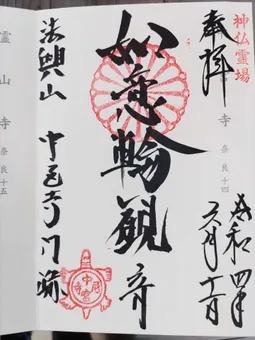 神仏霊場
奉拝
寺 奈良十四
令和四年
六月十一日
如意輪觀音
法興山 中宮寺門跡
霊山寺 奈良十五